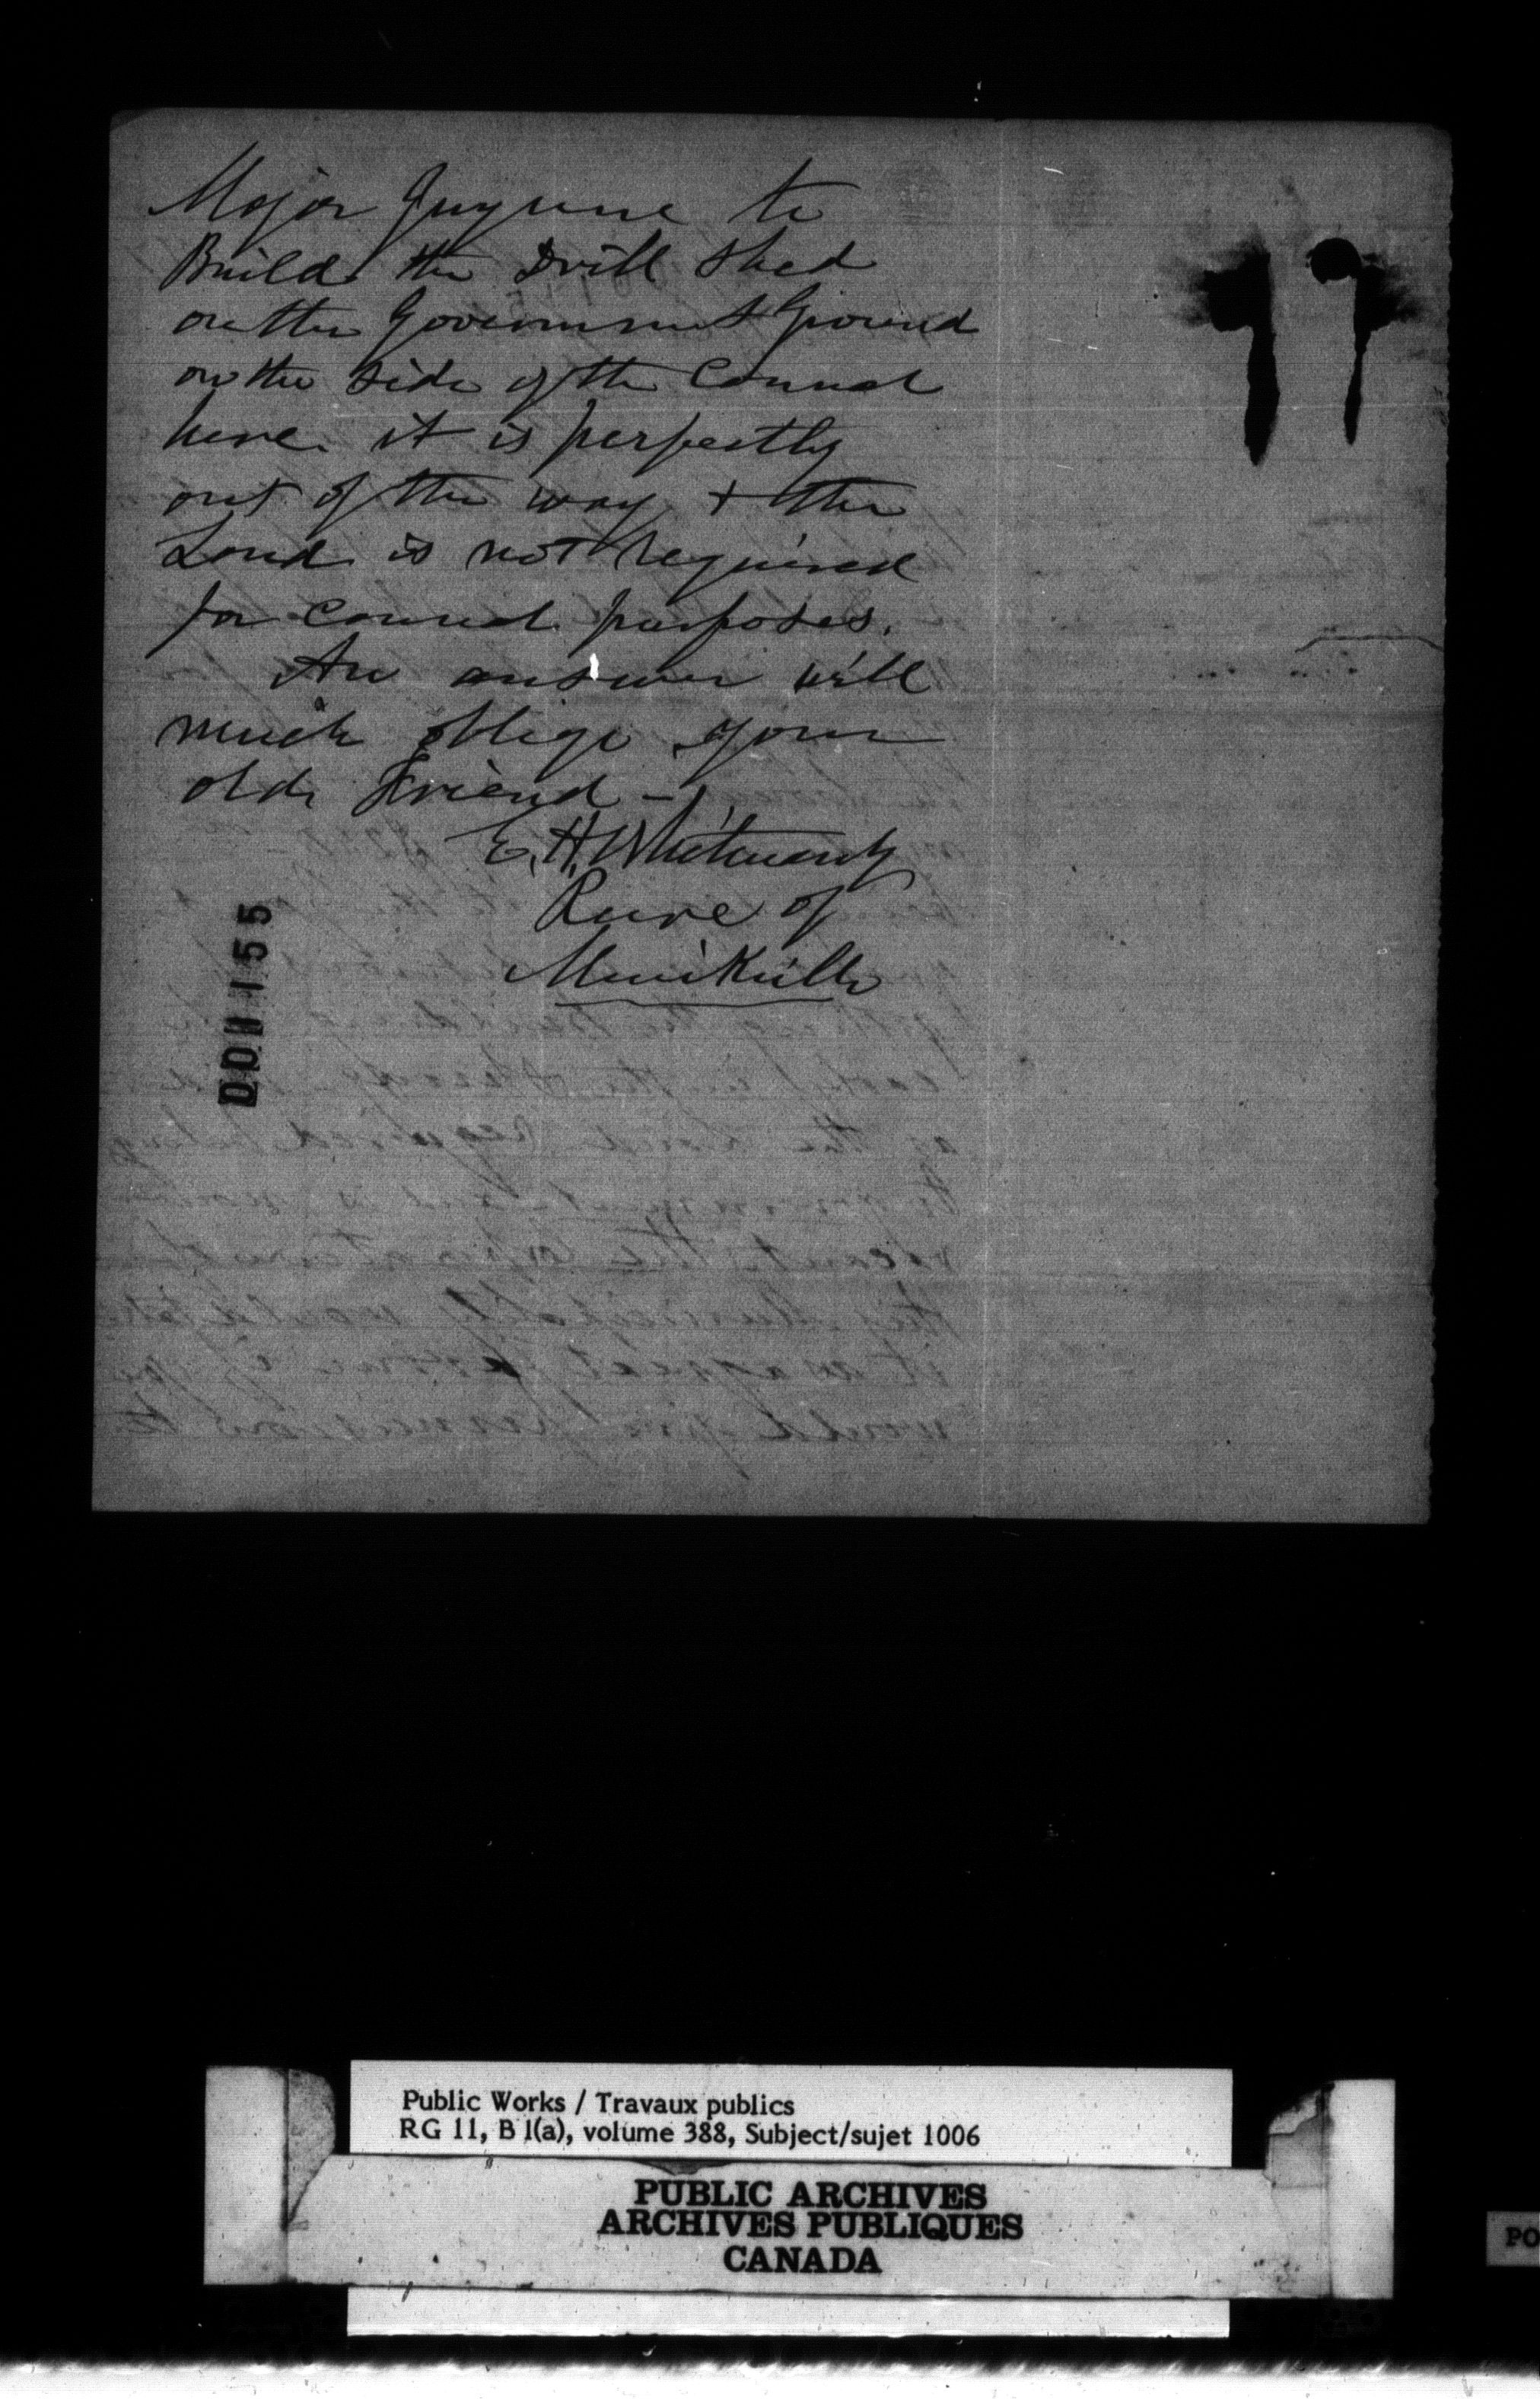 Major Guyune to
Build the Drill Shed
on the Government Ground
on the side of the Cannal
here it is perfectly
out of the way + the
Land is not required
for Cannal purposes.
An answer will
much oblige your
old Friend –
E. H. Whitmarsh
Reeve of
Merrickville
001155
Public Works / Travaux publics
RG 11, B 1(a), volume 388, Subject/sujet 1006
PUBLIC ARCHIVES
ARCHIVES PUBLIQUES
CANADA
PO